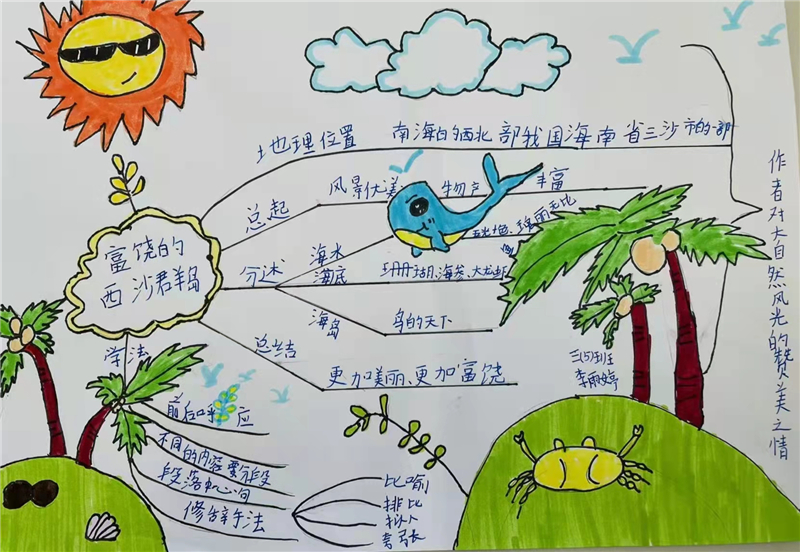 地理位置
南海的西北部我国海南省三沙市的一部
总起
风景优美
物产
丰富
富饶的
西沙群岛
分述
海水
五光十色、瑰丽无比
海底
珊瑚、海参、大龙虾
海岛
鸟的天下
总结
更加美丽、更加富饶
学法
前后呼应
不同的内容要分段
段落中心句
修辞手法
比喻
排比
拟人
夸张
三(5)班
李雨婷
作者对大自然风光的赞美之情